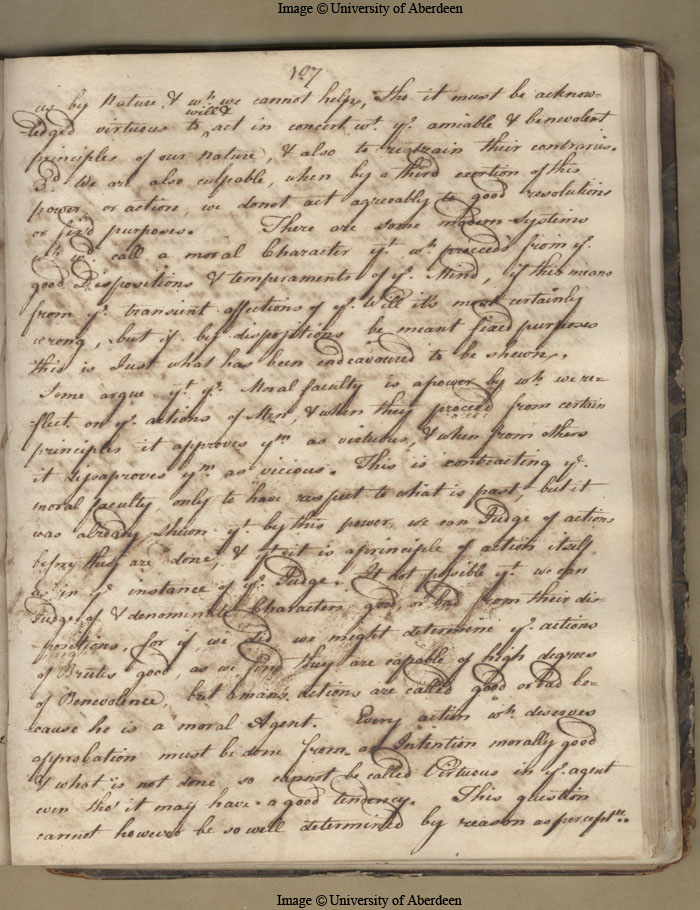 Image © University of Aberdeen
107
as by Nature & wh. we cannot help, tho it must be acknow-
will &
ledged virtuous to act in concert wt. ye. amiable & benevolent
principles of our nature, & also to restrain their contraries.
3d. We are also culpable, when by a third exertion of this
power, or action, we do not act agreeably to good resolutions
or fix'd purposes. There are some modern Systems
wh. wd. call a moral Character yt. wh. proceeds from ye.
good Dispositions & temperaments of ye. Mind, if this means
from ye. transient affections of ye. Will it's most certainly
wrong, but if by dispositions be meant fixed purposes
this is Just what has been endeavoured to be shewn.
Some argue yt. ye. Moral faculty is a power by wh. we re-
flect on ye. actions of Men, & when they proceed from certain
principles it approves ym. as virtuous, & when from others
it disaproves ym. as vicious. This is contracting ye.
moral faculty, only to have respect to what is past, but it
was already shewn yt. by this power, we can Judge of actions
before they are done, & yt. it is a principle of action itself
as in ye. instance of ye. Judge. It not possible yt. we can
Judge of & denominate Characters good, or bad from their dis-
-positions, for if we did we might determine ye. actions
of Brutes good, as we find they are capable of high degrees
of Benevolence, but a mans actions are called good or bad be-
cause he is a moral Agent. Every action wh. deserves
approbation must be done from an Intention morally good
& what is not done so cannot be called Virtuous in ye. agent
even tho' it may have a good tendency. This question
cannot however be so well determined by reason as perceptn..
Image © University of Aberdeen